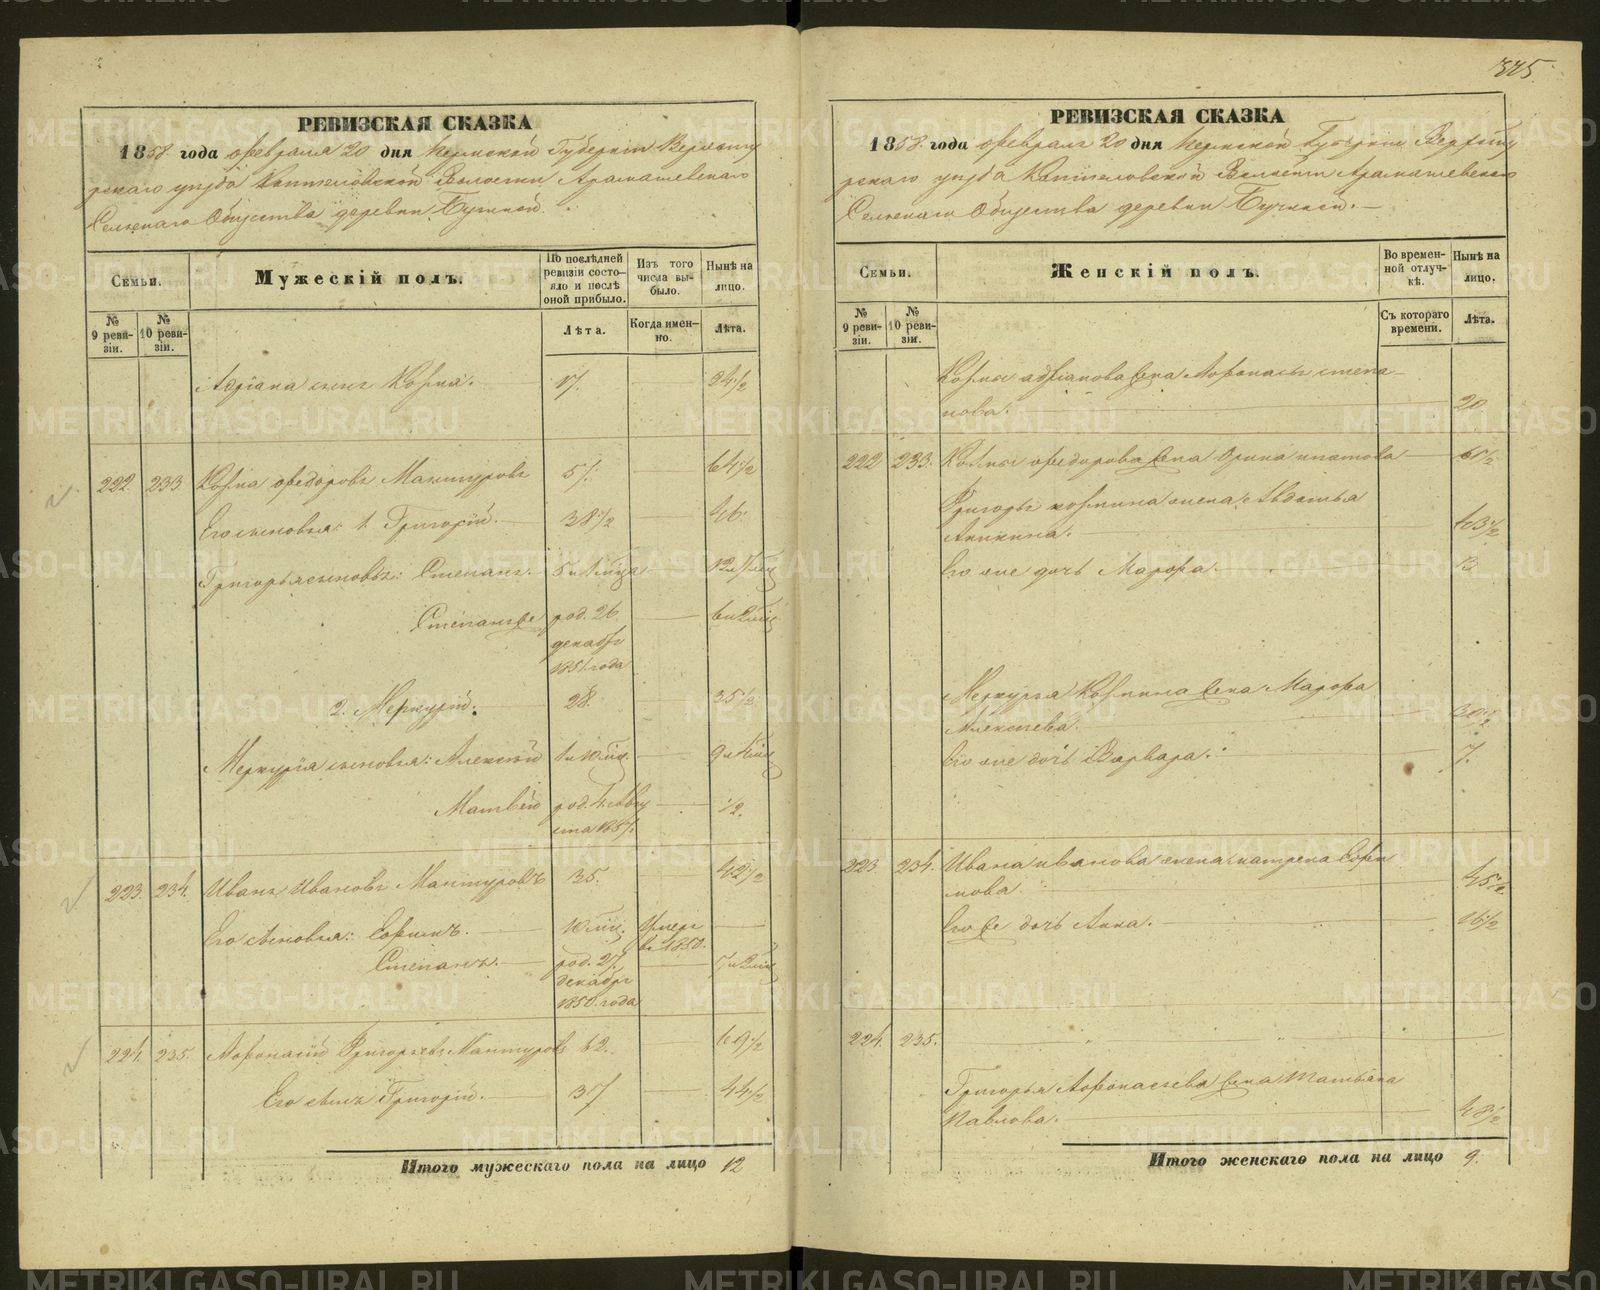 325.
РЕВИЗСКАЯ СКАЗКА
1858 года февраля 20 дня Пермской Губернии Верхоту
рскаго уезда Коптеловской Волости Арамашевскаго
Сельскаго Общества деревни Бучиной.
Семьи.
Мужескій полъ.
По послѣдней ревизіи состо-
яло и послѣ оной прибыло.
Изъ того числа вы-
было.
Нынѣ на лицо.
№ 9 реви-
зіи.
№ 10 реви-
зіи.
Лѣта.
Когда имен-
но.
Лѣта.
Адріана сынъ Козма. 17. 24½
222. 233 Козма Федоровъ Мантуровъ 57. 64½
Его сыновья: 1. Григорій. 38½ 46.
Григорья сыновья: Степанъ. 5 и 1 12 и
Степанъ же род. 26 декабр 1851. года 6 и 2
2. Меркурій. 28. 35½
Меркурія сыновья: Алексѣй 1 и 10 9 и
Матвѣй род. Авгу
ста 1857. ½.
223. 234. Иванъ Ивановъ Мантуровъ 35. 42½
Его сыновья: Софонъ. 10 Умеръ въ 1850.
Степанъ. род. 27. декабря 1850. года 7 и 2
224. 235. Афонасій Григорьевъ Мантуровъ 62. 69½
Его сынъ Григорій. 37 44½
Итого мужескаго пола на лицо 12
РЕВИЗСКАЯ СКАЗКА
1858. года февраля 20 дня Пермской Губерніи Верхоту
рскаго уезда Коптеловской Волости Арамашевскаго
Сельскаго Общества деревни Бучиной.
Семьи.
Женскій полъ.
Во времен-
ной отлуч-
кѣ.
Нынѣ на лицо.
№ 9 реви-
зіи.
№ 10 реви-
зіи.
Съ котораго времени.
Лѣта.
Козмы адріанова жена Афонасья степа
нова. 20
222 233. Козмы федорова жена Орина ипатова 65½
Григорья козмина жена Авдотья
Аникина. 43½
Его же дочь Марфа. 13
Меркурья Козмина жена Марфа
Алексѣева. 30½
Его же дочь Варвара. 7.
223. 234. Ивана иванова жена матрена Софо
нова 45½
Его же дочь Анна. 16½
224. 235.
Григорья Афонасьева жена татьяна
Павлова. 48½
Итого женскаго пола на лицо 9.
METRIKI.GASO-URAL.RU